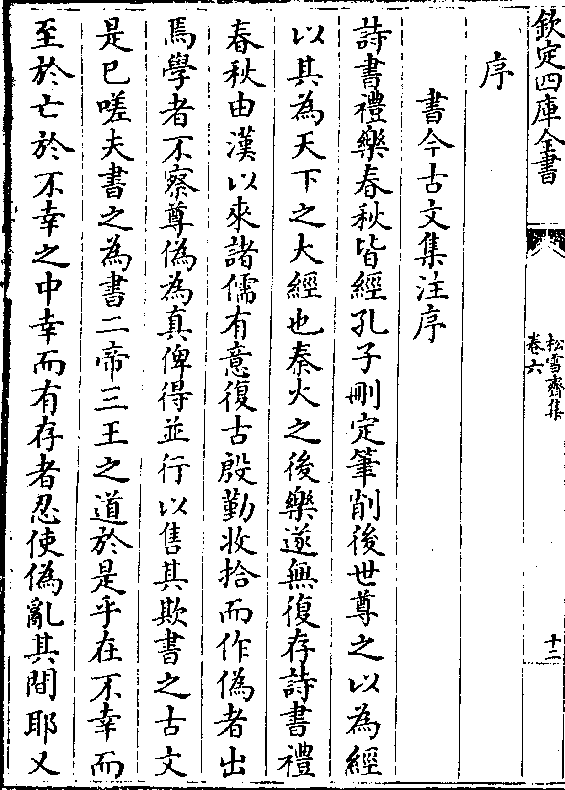 欽定四庫全書
松雪齋集
卷六
十二
序
書今古文集注序
詩書禮樂春秋皆經孔子刪定筆削後世尊之以為經
以其為天下之大經也秦火之後樂遂無復存詩書禮
春秋由漢以來諸儒有意復古殷勤收拾而作偽者出
焉學者不察尊偽為真俾得並行以售其欺書之古文
是已嗟夫書之為書二帝三王之道於是乎在不幸而
至於亡於不幸之中幸而有存者忍使偽亂其間耶又